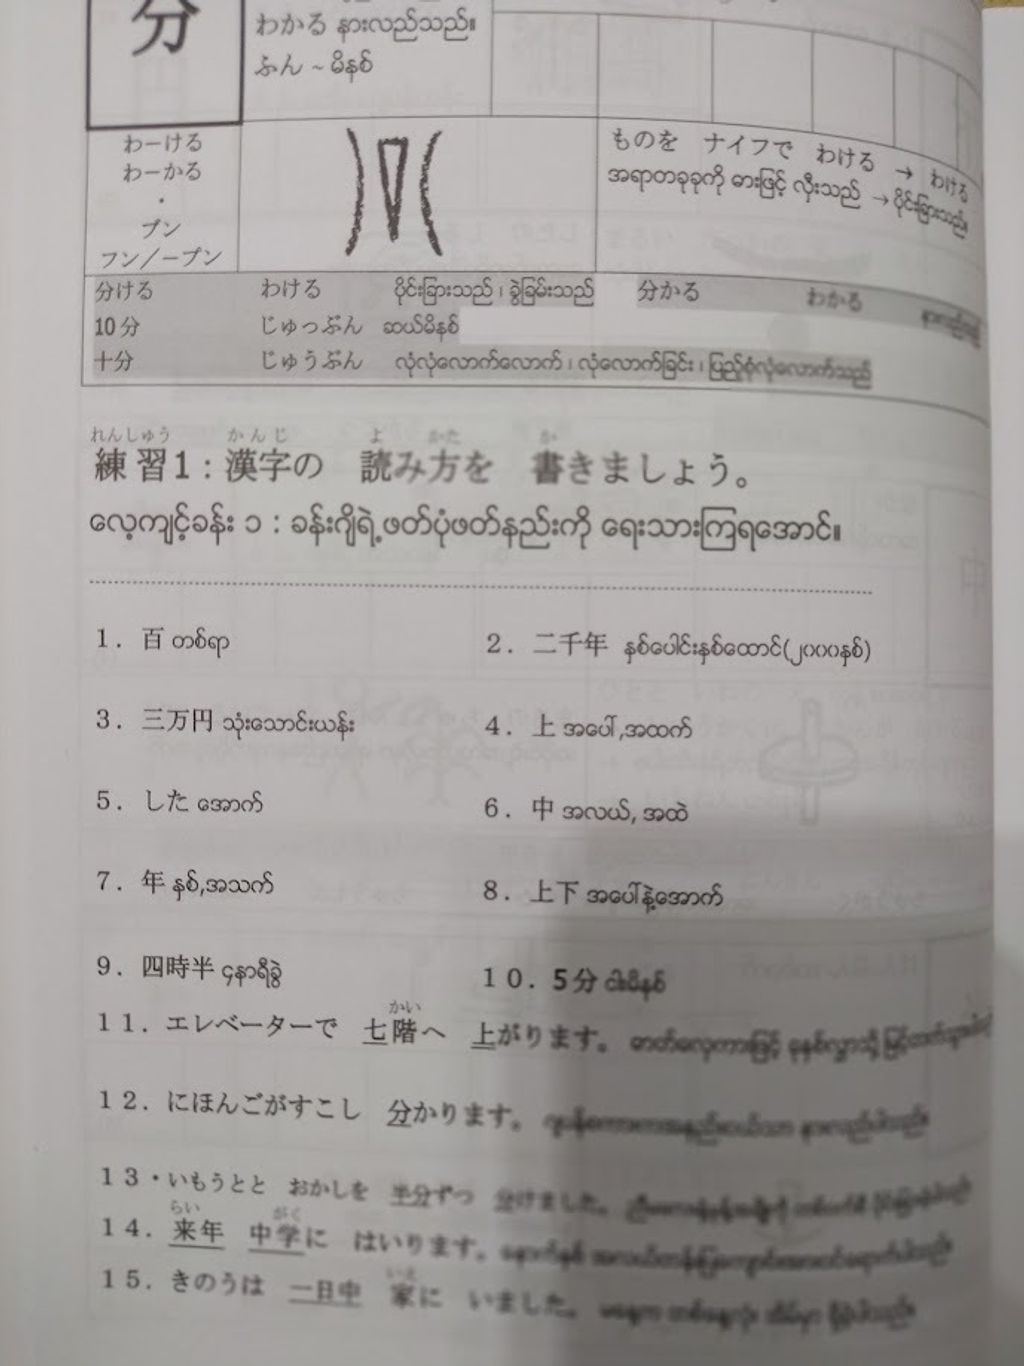 分
わかる နားလည်သည်။
ふん ~ မိနစ်
わーける
わーかる
・
ブン
フン／ープン
ものを ナイフで わける → わける
အရာတခုခုကို ဓားဖြင့် လှီးသည် → ပိုင်းခြားသည်။
分ける わける ပိုင်းခြားသည်၊ ခွဲခြမ်းသည် 分かる わかる
10分 じゅっぷん ဆယ်မိနစ်
十分 じゅうぶん လုံလုံလောက်လောက်၊ လုံလောက်ခြင်း၊ ပြည့်စုံလုံလောက်သည်
れんしゅう かんじ よ かた か
練習1：漢字の 読み方を 書きましょう。
လေ့ကျင့်ခန်း ၁ : ခန်းဂျိရဲ့ဖတ်ပုံဖတ်နည်းကို ရေးသားကြရအောင်။
1．百 တစ်ရာ
2．二千年 နှစ်ပေါင်းနှစ်ထောင်(၂၀၀၀နှစ်)
3．三万円 သုံးသောင်းယန်း
4．上 အပေါ်,အထက်
5．した အောက်
6．中 အလယ်, အထဲ
7．年 နှစ်,အသက်
8．上下 အပေါ်နဲ့အောက်
9．四時半 ၄နာရီခွဲ
10．5分 ငါးမိနစ်
かい
11．エレベーターで 七階へ 上がります。 ဓာတ်လှေကားဖြင့်
12．にほんごがすこし 分かります。
13・いもうとと おかしを 半分ずつ 分けました。
らい がく
14．来年 中学に はいります。
いえ
15．きのうは 一日中 家に いました。